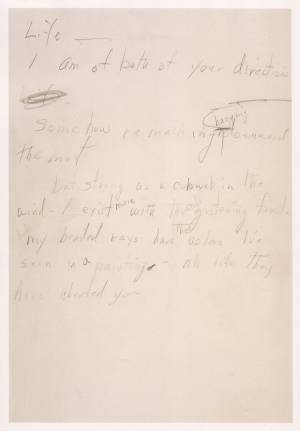 Life —
I am of both of your directions
Life
Somehow remaining hanging downward
the most
but strong as a cobweb in the
wind — I exist more with the glistening frost.
my beaded rays have the colors I've
seen in a painting — ah life they
have cheated you